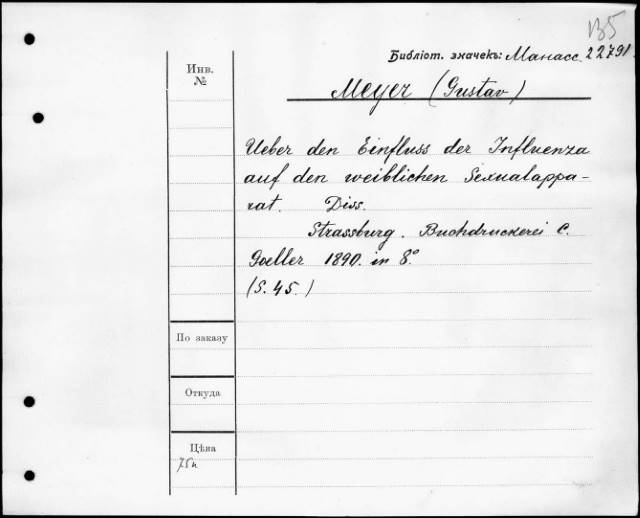 135
Библіот. значекъ: Манасс. 22791.
Инв.
№
Meyer (Gustav)
Ueber den Einfluss der Influenza
auf den weiblichen Sexualappa-
rat. Diss.
Strassburg. Buchdruckerei C.
Goeller 1890. in 8°
(S. 45.)
По заказу
Откуда
Цѣна
75к